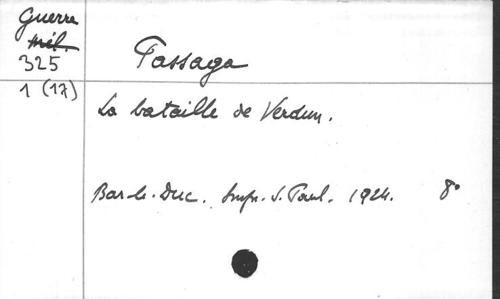 Guerre
mél.
325
1 (17)
Passaga
La bataille de Verdun.
Bar-le-Duc. Impr. S. Paul. 1924. 8°